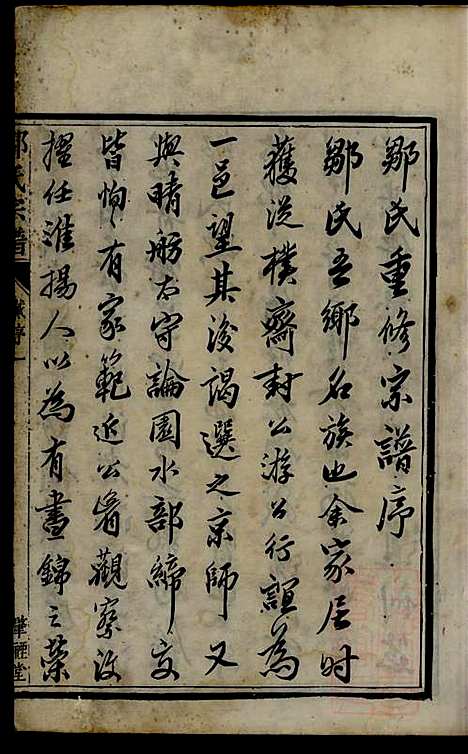 鄒氏重修宗譜序
鄒氏吾鄉名族也余家居时
獲從樸齋封公游公行誼為
一邑望其後謁選之京師又
與晴舫太守論園水部締交
皆恂〻有家範近公眉觀察设
擢任淮揚人以為有晝錦之榮
鄒氏宗譜
序一
華禋堂